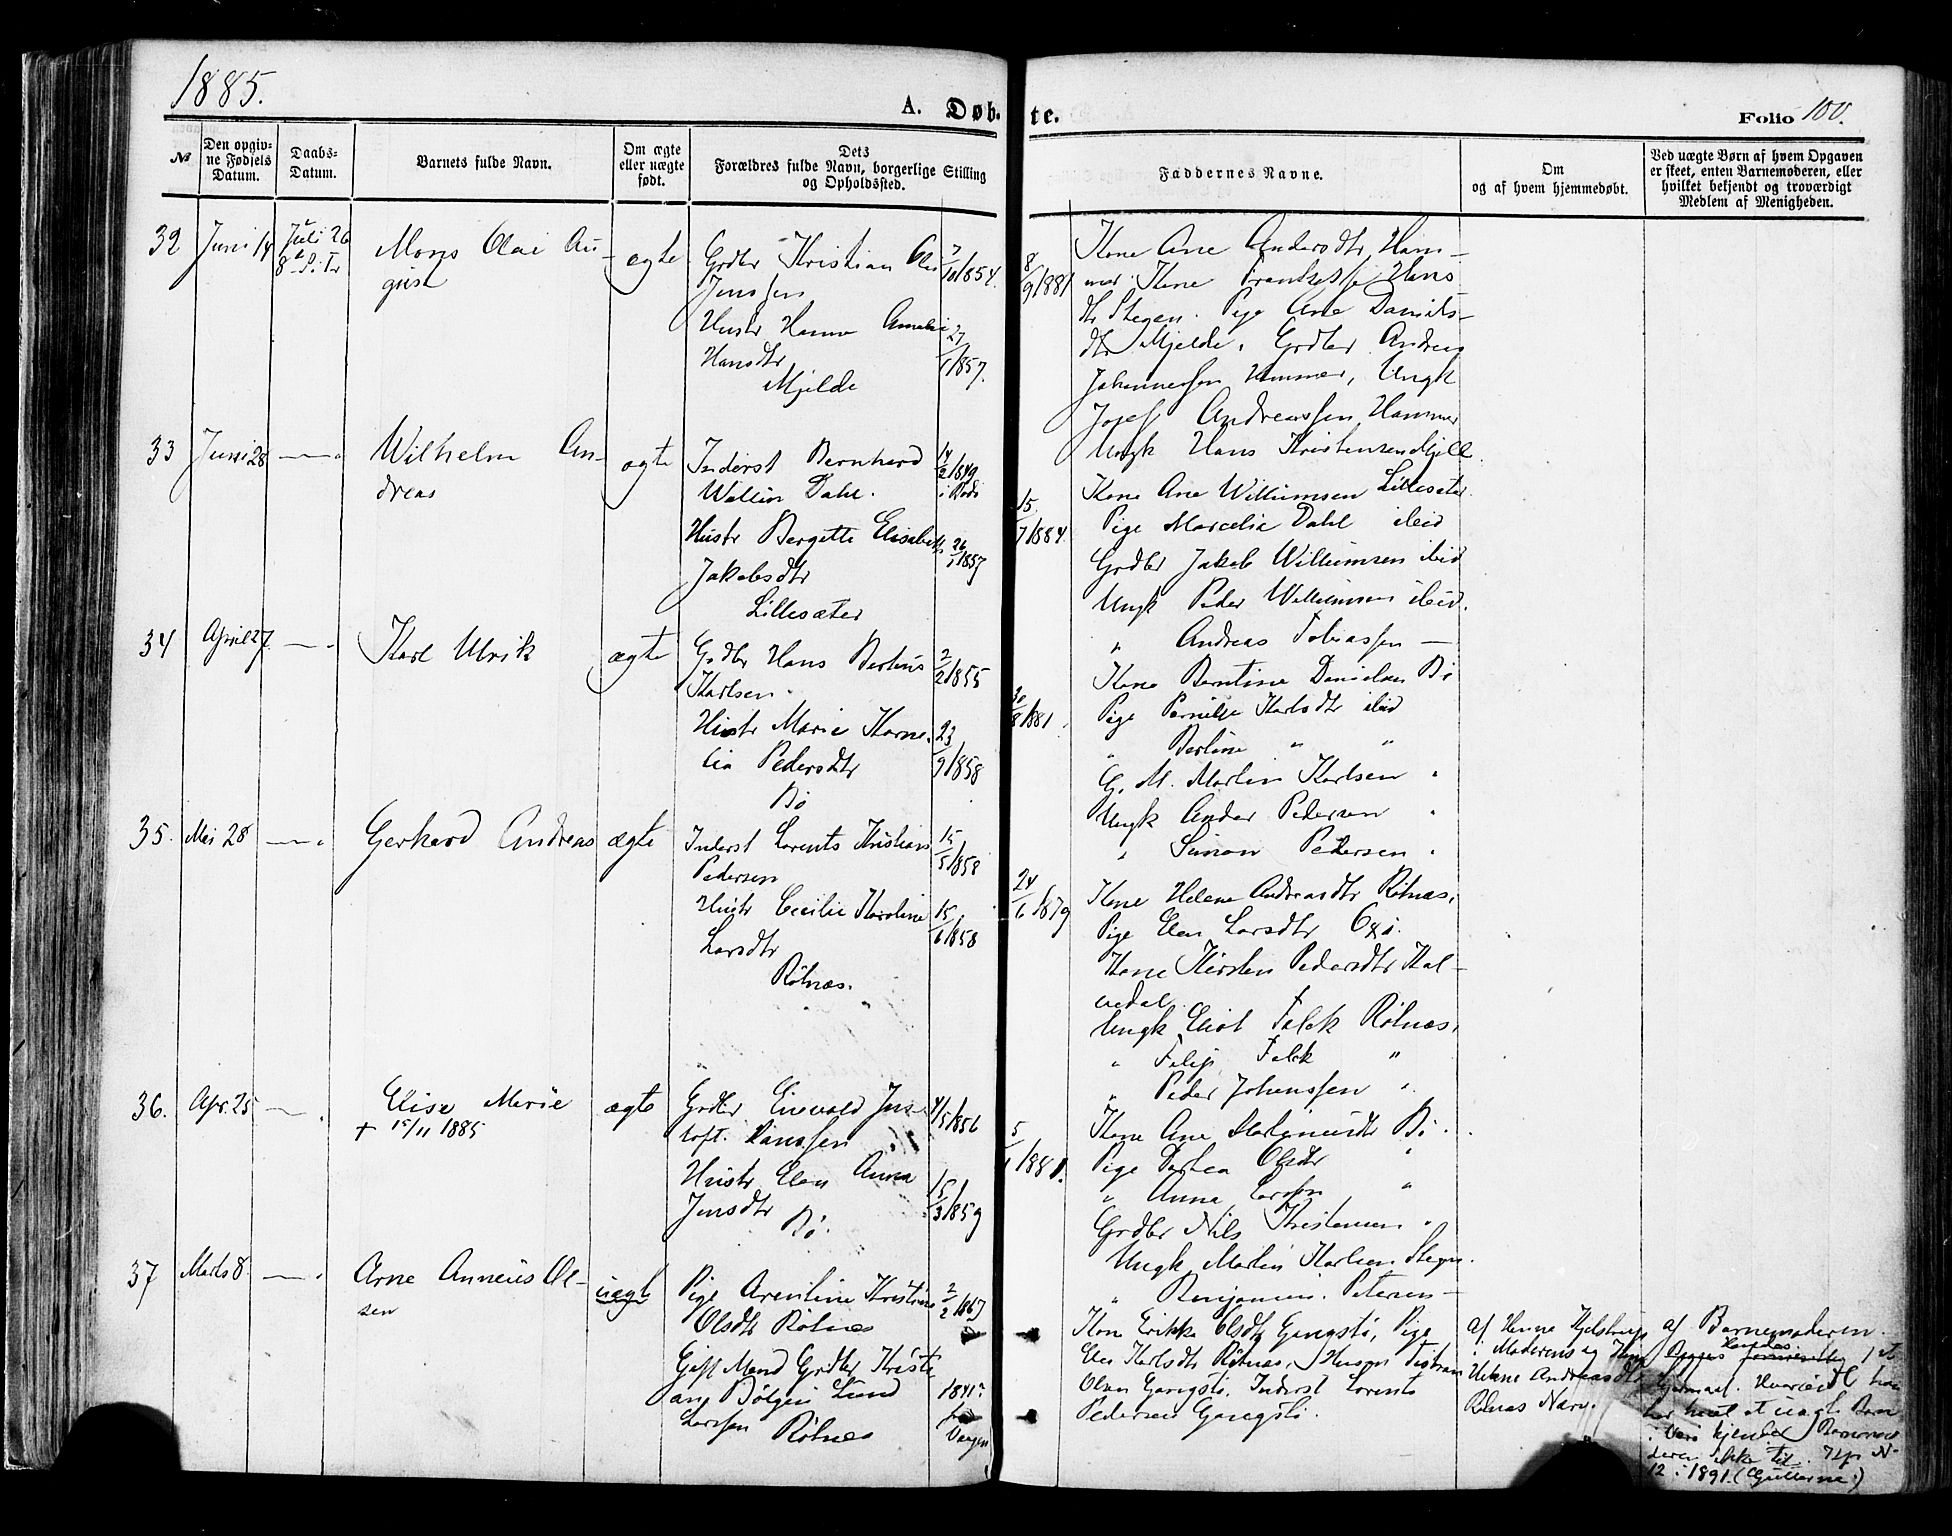 1885.
A. Døb.
te.
Folio 100.
№
Den opgiv-
ne Fødsels
Datum.
Daabs-
Datum.
Barnets fulde Navn.
Om ægte
eller uægte
født.
Dets
Forældres fulde Navn, borgerlige Stilling
og Opholdssted.
Faddernes Navne.
Om
og af hvem hjemmedøbt.
Ved uægte Børn af hvem Opgaven
er skeet, enten Barnemoderen, eller
hvilket bekjendt og troværdigt
Medlem af Menigheden.
32
Juni 14
Juli 26
8
Mons Olai Au-
gust
ægte
Grdbr Kristian
Jenssen
Hustr Hanna Amalie
Hansdtr
Mjelde
7/10 1854.
27/1 1857.
8/9 1881
Kone Ane Andersdtr Ham-
mer. Kone Hans
dtr Stegen. Pige Ane Daniels-
dtr Mjelde. Grdbr Andreas
Johannessen Hammer, Ungk
Josef Andreassen Hammer
Ungk Hans Kristensen Mjelde
33
Juni 28
Wilhelm An-
dreas
ægte
Inderst Bernhard
Dahl.
Hustr Bergitte Elisabeth
Jakobsdtr
Lillesæter
14/2 1849
i Bodø
26/1 1857
15/7 1884.
Kone Ane Willumsen Lillesæter.
Pige Marcelie Dahl ibid
Grdbr Jakob Willumsen ibid
Ungk Peder Willumsen ibid.
" Andreas Tobiassen —
34
April 27
Karl Ulrik
ægte
Grdbr Hans Bertius
Karlsen
Hustr Marie Korne-
lia Pedersdtr
Bø
2/2 1855
23/9 1858
30/8 1881.
Kone Berntine Danielsen Bø
Pige Pernille Karlsdtr ibid
" Berline " "
G. M. Martin Karlsen "
Ungk Ander Pedersen "
" Simon Pedersen "
35.
Mai 28
Gerhard Andreas
ægte
Inderst Lorents Kristian
Pedersen
Hustr Cecilie Karoline
Larsdtr
Røtnæs.
15/5 1858
15/6 1858
24/6 1879
Kone Helene Andreasdtr Røtnæs.
Pige Elen Larsdtr
Kone Kirsten Pedersdtr Kal-
vedal.
Ungk Eliot Falck Røtnæs.
" Filip Falck "
" Peder Johanssen "
36.
Apr. 25
Elise Marie
† 15/11 1885
ægte
Grdbr Enevald Jus-
toft. Hanssen
Hustr Elen Anna
Jensdtr
Bø.
4/5 1856
15/3 1859
5/1 1881.
Kone Ane Martinusdtr Bø.
Pige Dorthea Olsdtr "
" Anna Larsen "
Grdbr Nils Kristensen "
Ungk Martin Karlsen Stegen.
" Benjamin Petersen —
37
Marts 8.
Arne Anneus Ol-
sen
uægte
Pige Arentine Kristine
Olsdtr Røtnæs
Gift Mand Grdbr Kristi
an Bølgen Lund
Larssen Røtnes
2/2 1867
1841
Vaagen
Kone Erikke Olsdtr Gangstø, Pige
Elen Karlsdtr Røtnæs, Husm Tistran
Olsen Gangstø. Inderst Lorents
Pedersen Gangstø.
af Hanna Kjelstrup
i Moderens og
Helene Andreasdtr
Røtnæs Nærv.
af Barnemoderen.
har havt et uægte Barn
kjender Barnemo
deren ikke til.
12 i 1891. (Gutterne)